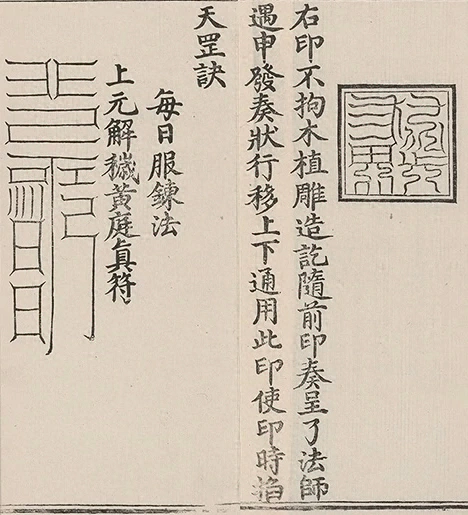 右印不拘木植雕造訖隨前印奏呈了法師
遇申發奏狀行移上下通用此印使印時掐
天罡訣
每日服鍊法
上元解穢黃庭真符